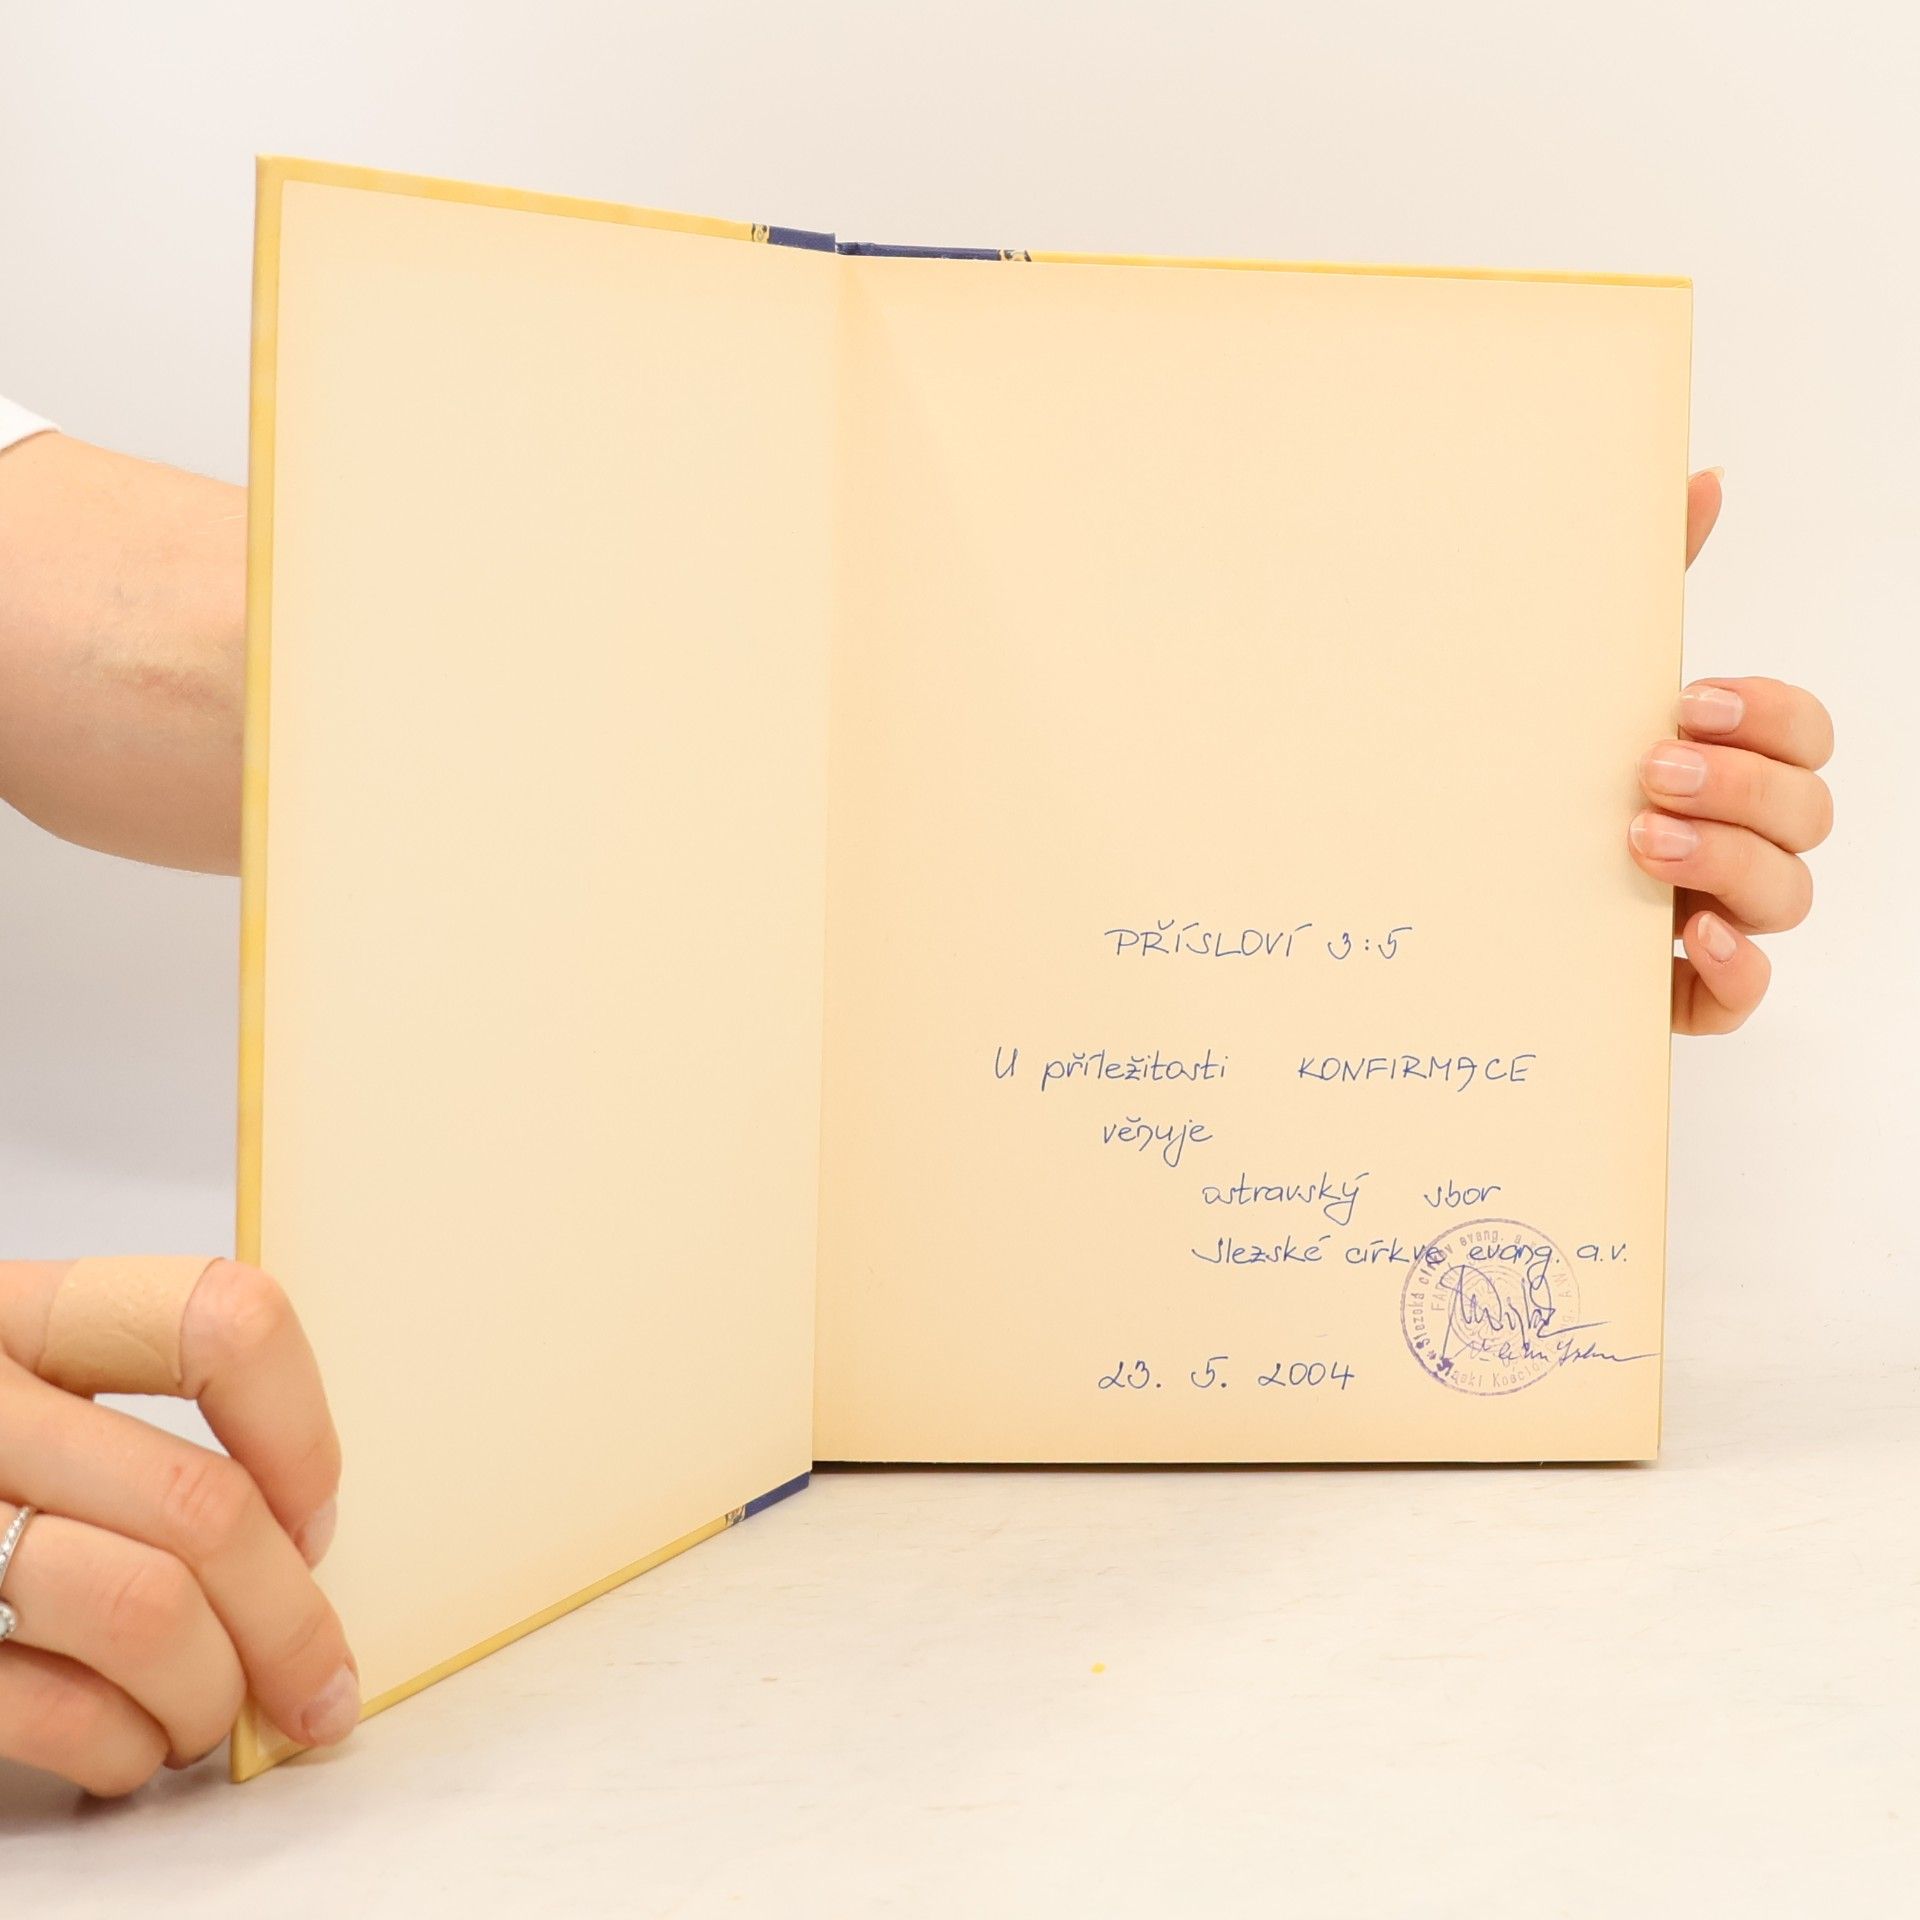 PŘÍSLOVÍ 3:5
U příležitosti KONFIRMACE
věnuje
ostravský sbor
Slezské církve evang. a.v.
23. 5. 2004
Slezská církev evang. a.